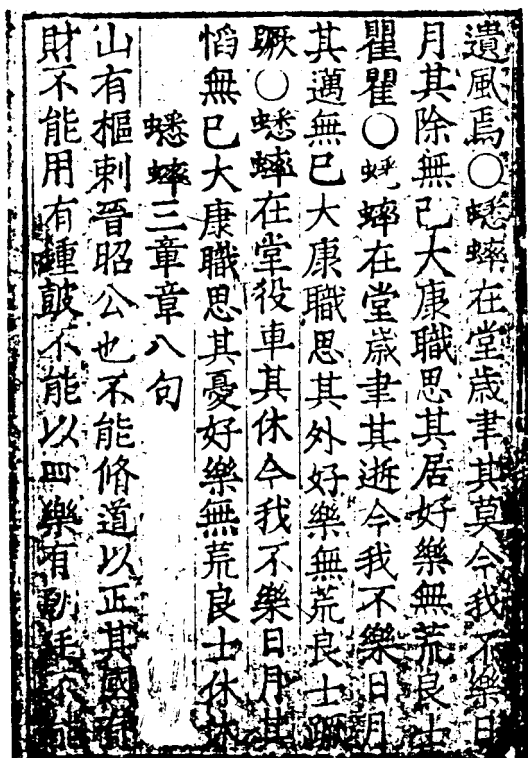 遺風焉○蟋蟀在堂歳聿其莫今我不樂日
月其除無已大康職思其居好樂無荒良士
瞿瞿○蟋蟀在堂歳聿其逝今我不樂日月
其邁無已大康職思其外好樂無荒良士蹶
蹶○蟋蟀在堂役車其休今我不樂日月其
慆無已大康職思其憂好樂無荒良士休休
蟋蟀三章章八句
山有樞刺晉昭公也不能脩道以正其國有
財不能用有鍾鼓不能以自樂有朝廷不能